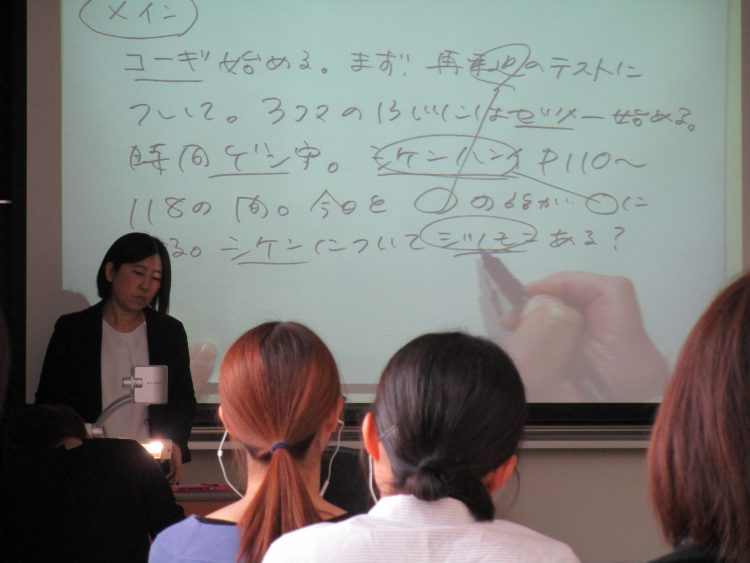 メイン
コーギ始める。まず! 再来週のテストに
ついて。3コマの ははゼツメー始める。
時間ゲンシュ。シケンハンイ P110～
118の間。今日と 〇 の に
る。シケンについてシツモンある?